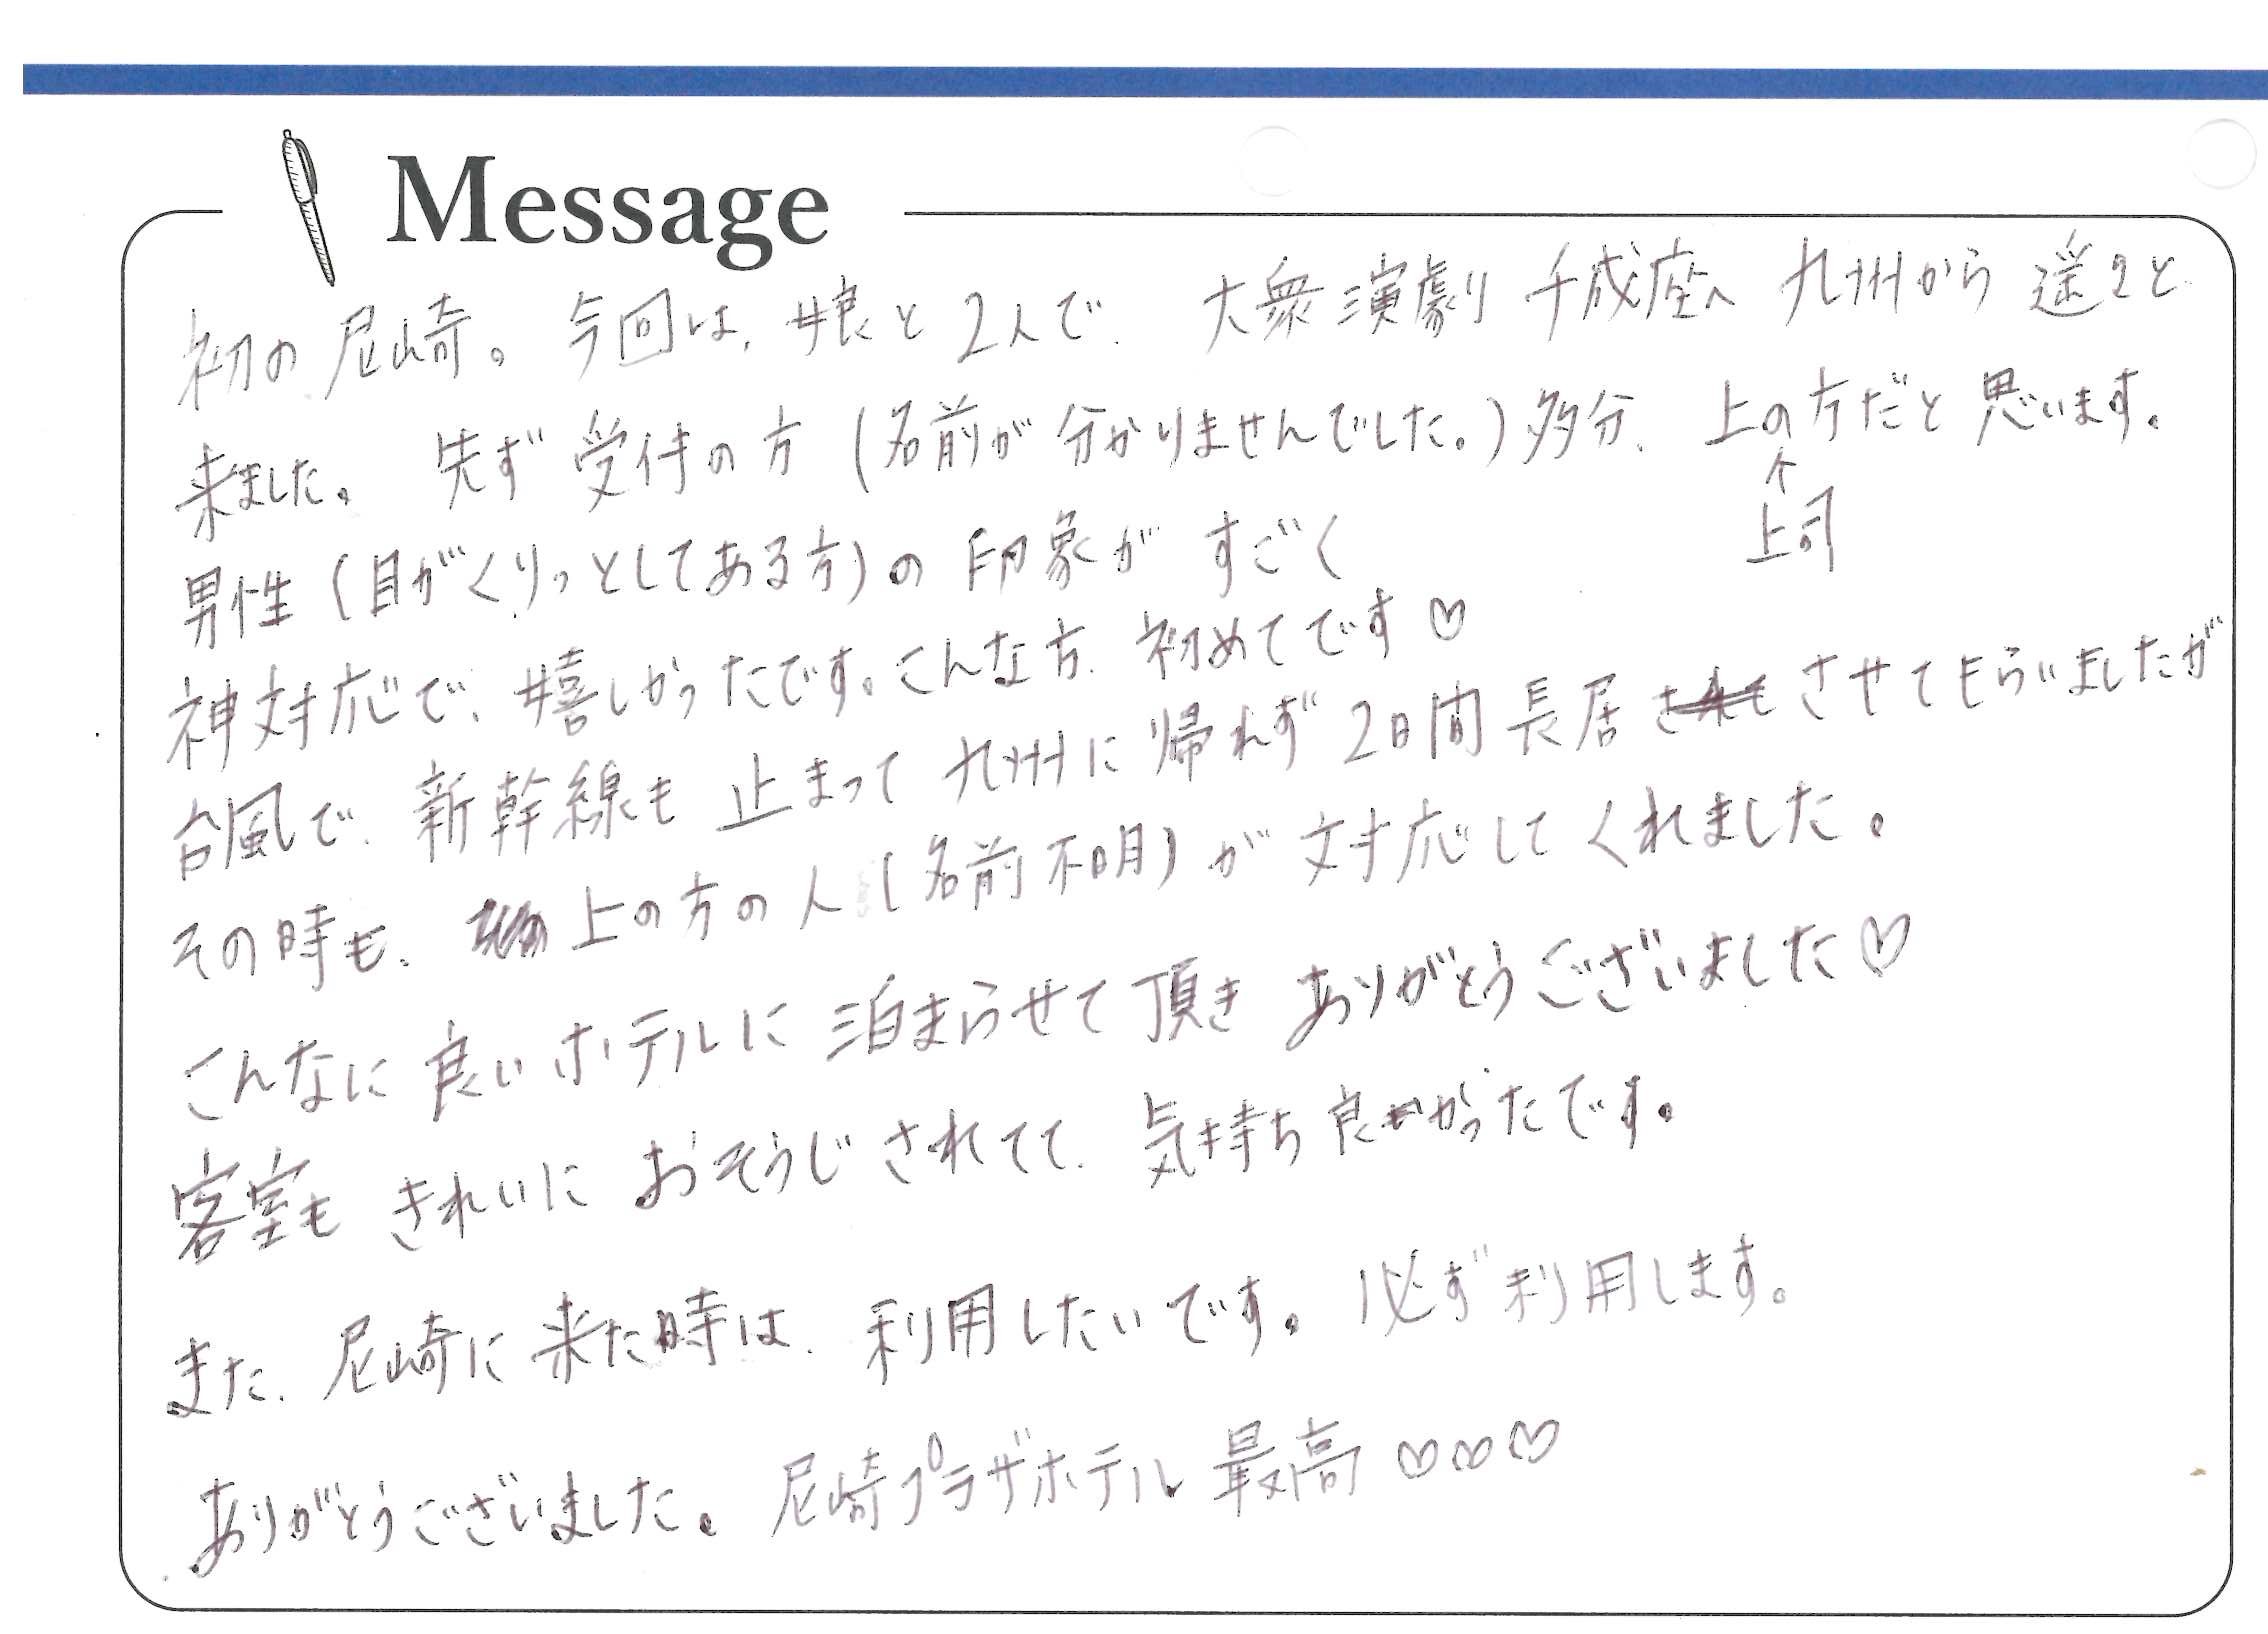 Message
初の尼崎。今回は、娘と2人で、大衆演劇 千成座へ 九州から 遥々と
来ました。先ず 受付の方 (名前が 分かりませんでした。) 多分、上の方だと 思います。
↑
上司
男性 (目がくりっとしてある方) の 印象が すごく
神対応で、嬉しかったです。こんな方、初めてです♡
台風で、新幹線も 止まって 九州に 帰れず 2日間 長居 させてもらいましたが
その時も、上の方の人 (名前不明) が 対応してくれました。
こんなに 良いホテルに 泊まらせて 頂き ありがとうございました♡
客室も きれいに おそうじされてて、気持ち良かったです。
また、尼崎に 来た時は、利用したいです。必ず 利用します。
ありがとうございました。尼崎プラザホテル 最高 ♡♡♡